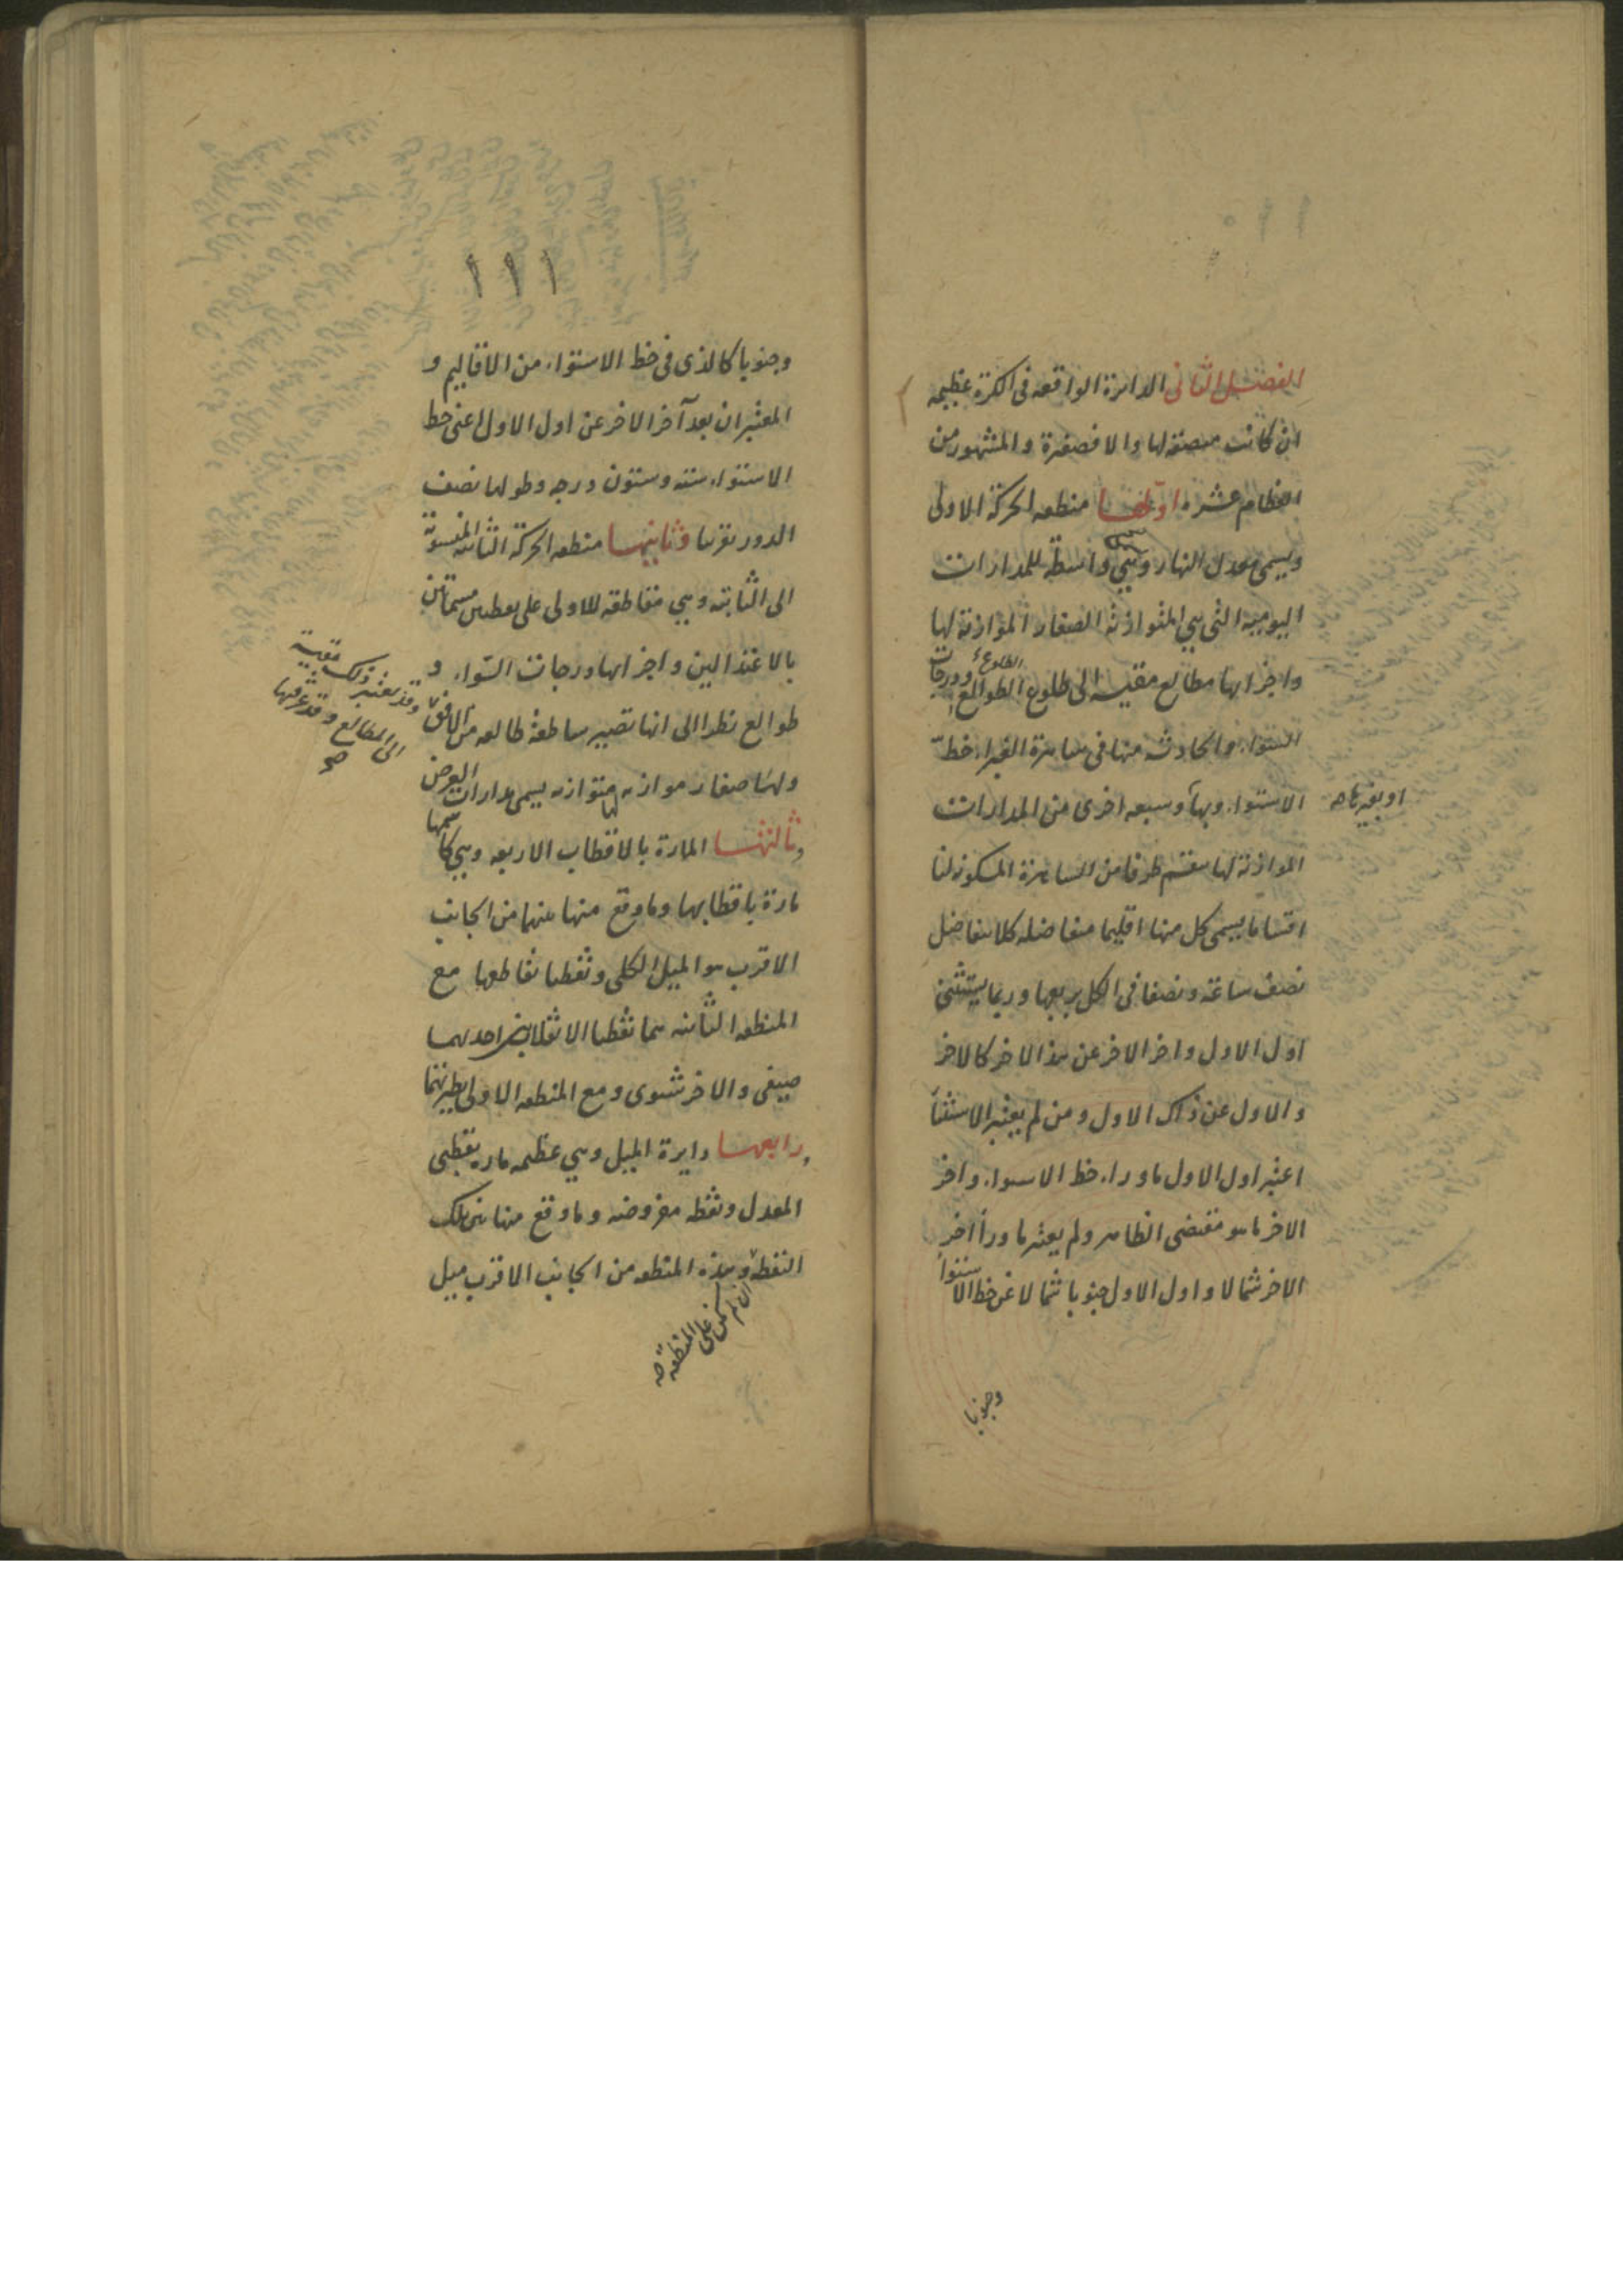 الفصل الثانی الدائرة الواقعه فی الکرة عظیمه
ان کانت منصفه لها والا فصغیرة والمشهور من
العظام عشره اولها منطقه الحرکة الاولی
ویسمی معدل النهار وهی واسطة للمدارات
الیومیه التی هی المتوازیة الصغار الموازیة لها
واجزائها مطالع مقیسه الی طلوع الطوالع ودرجات
الطلوع
الستواء والحادثه منها فی سایرة الغبراء خط
الاستواء وبها وسبعه اخری من المدارات
او بغیرها صه
الموازیة لها ینقسم طرفا من السایرة المسکونه لنا
اقساما یسمی کل منها اقلیما متفاضله کلا بتفاضل
نصف ساعة ونصفا فی الکل بربعها وربما یستثنی
اول الاول واخر الاخر عن هذا الاخر کالاخر
والاول عن ذاک الاول ومن لم یعتبر الاستثناء
اعتبر اول الاول ماوراء خط الاستواء واخر
الاخر ما هو مقتضی الظاهر ولم یعتبر ماوراء اخر
الاخر شمالا واول الاول جنوبا شمالا عن خط الاستواء
وجنوبا
وجنوبا کالذی فی خط الاستواء من الاقالیم و
المعتبر ان بعد آخر الاخر عن اول الاول اعنی خط
الاستواء سته وستون درجه وطولها نصف
الدور تقریبا وثانیها منطقه الحرکة الثانیه المنسوبة
الی الثابته وهی مقاطعة للاولی علی نقطتین مسماتین
بالاعتدالین واجزائها درجات السواء و
طوالع نظرا الی انها تصیر ساطعة طالعه من الافق
وقد یعتبر ذلک مقیسة
الی المطالع وقد عرفتها
صح
ولها صغار موازیه لها متوازیه یسمی مدارات العرض
وثالثها المارة بالاقطاب الاربعه وهی کاسمها
مارة باقطابها وما وقع منها بینهما من الجانب
الاقرب هو المیل الکلی ونقطتا تقاطعها مع
المنطقه الثانیه هما نقطتا الانقلابین احدیهما
صیفی والاخر شتوی ومع المنطقه الاولی نظیرتهما
ورابعها دایرة المیل وهی عظیمه ماره بقطبی
المعدل ونقطه مفروضه وما وقع منها بین تلک
النقطة وهذه المنطقه من الجانب الاقرب میل
ان لم تکن علی المنطقة صه